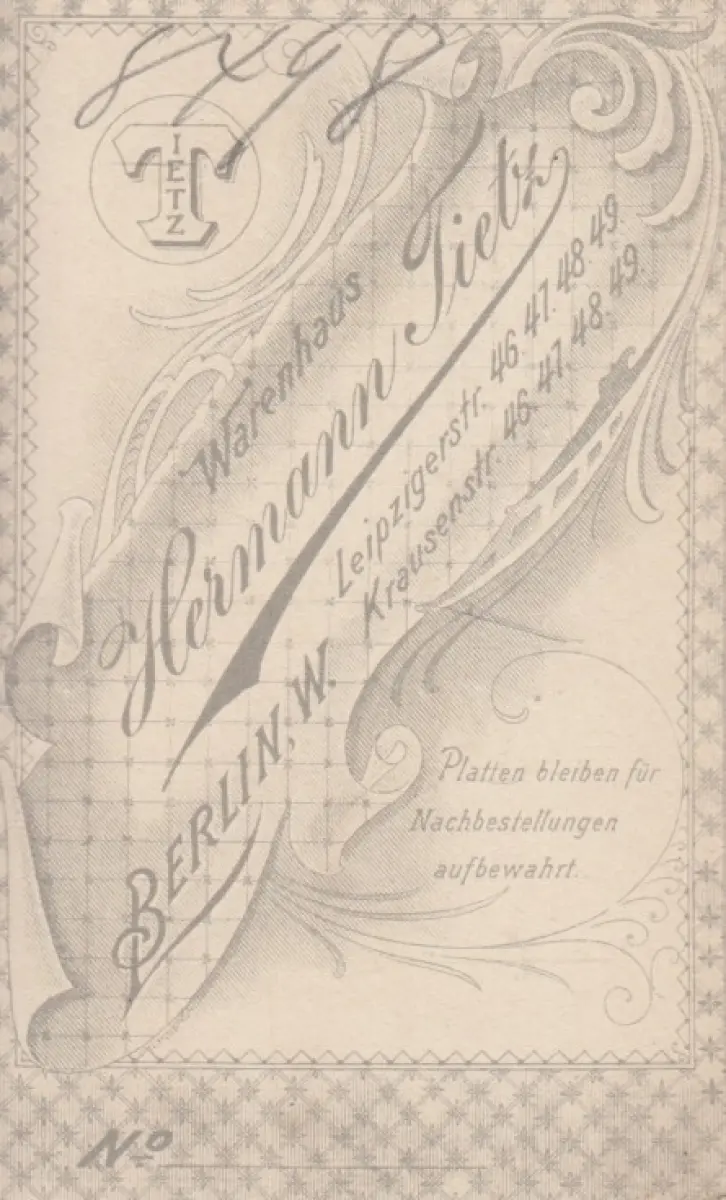 8498
TIETZ
Warenhaus
Hermann Tietz
Leipzigerstr. 46. 47. 48. 49.
Krausenstr. 46. 47. 48. 49.
BERLIN, W.
Platten bleiben für
Nachbestellungen
aufbewahrt.
No